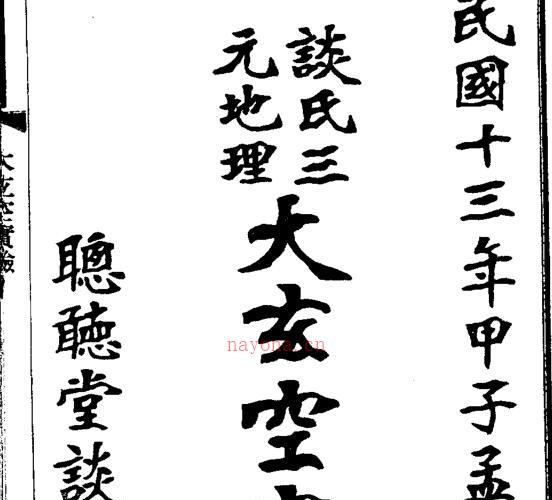 民國十三年甲子孟
談氏三
元地理
大玄空
聰聽堂談
nayona.cn
大玄空實驗